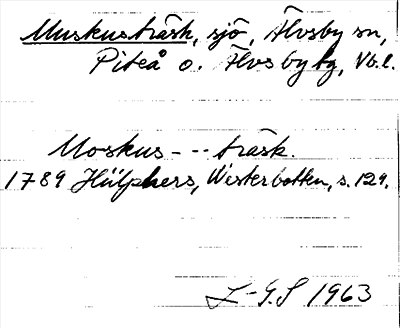 Muskusträsk, sjö, Älvsby sn,
Piteå o. Älvsby tg, Vb.l.
Moskus - - träsk.
1789 Hülphers, Westerbotten, s. 129.
L-G.S 1963